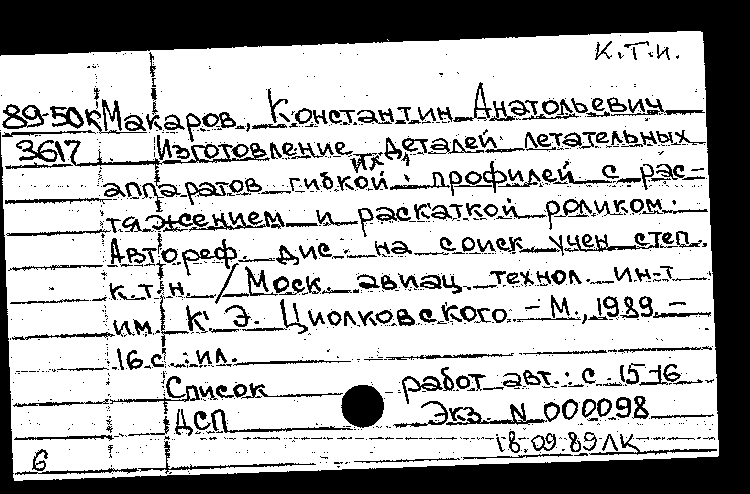 К.Т.Н.
89-50К Макаров, Константин Анатольевич
3617 Изготовление деталей летательных
аппаратов гибкой их профилей с рас-
тяжением и раскаткой роликом:
Автореф. дис. на соиск. учен степ.
к.т.н. / Моск. авиац. технол. ин-т
им. К. Э. Циолковского – М., 1989. –
16 с. : ил.
Список работ авт.: с. 15-16
ДСП Экз. N 000098
18.09.89 ЛК
6